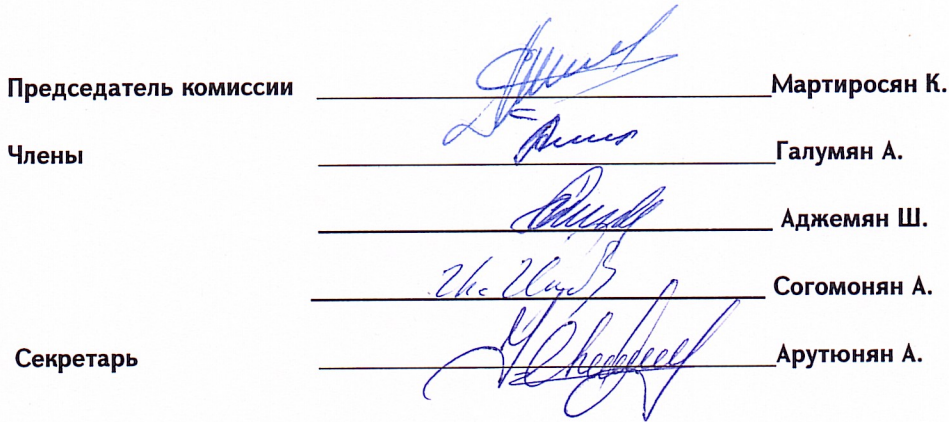 Председатель комиссии Мартиросян К.
Члены Галумян А.
Аджемян Ш.
Согомонян А.
Секретарь Арутюнян А.